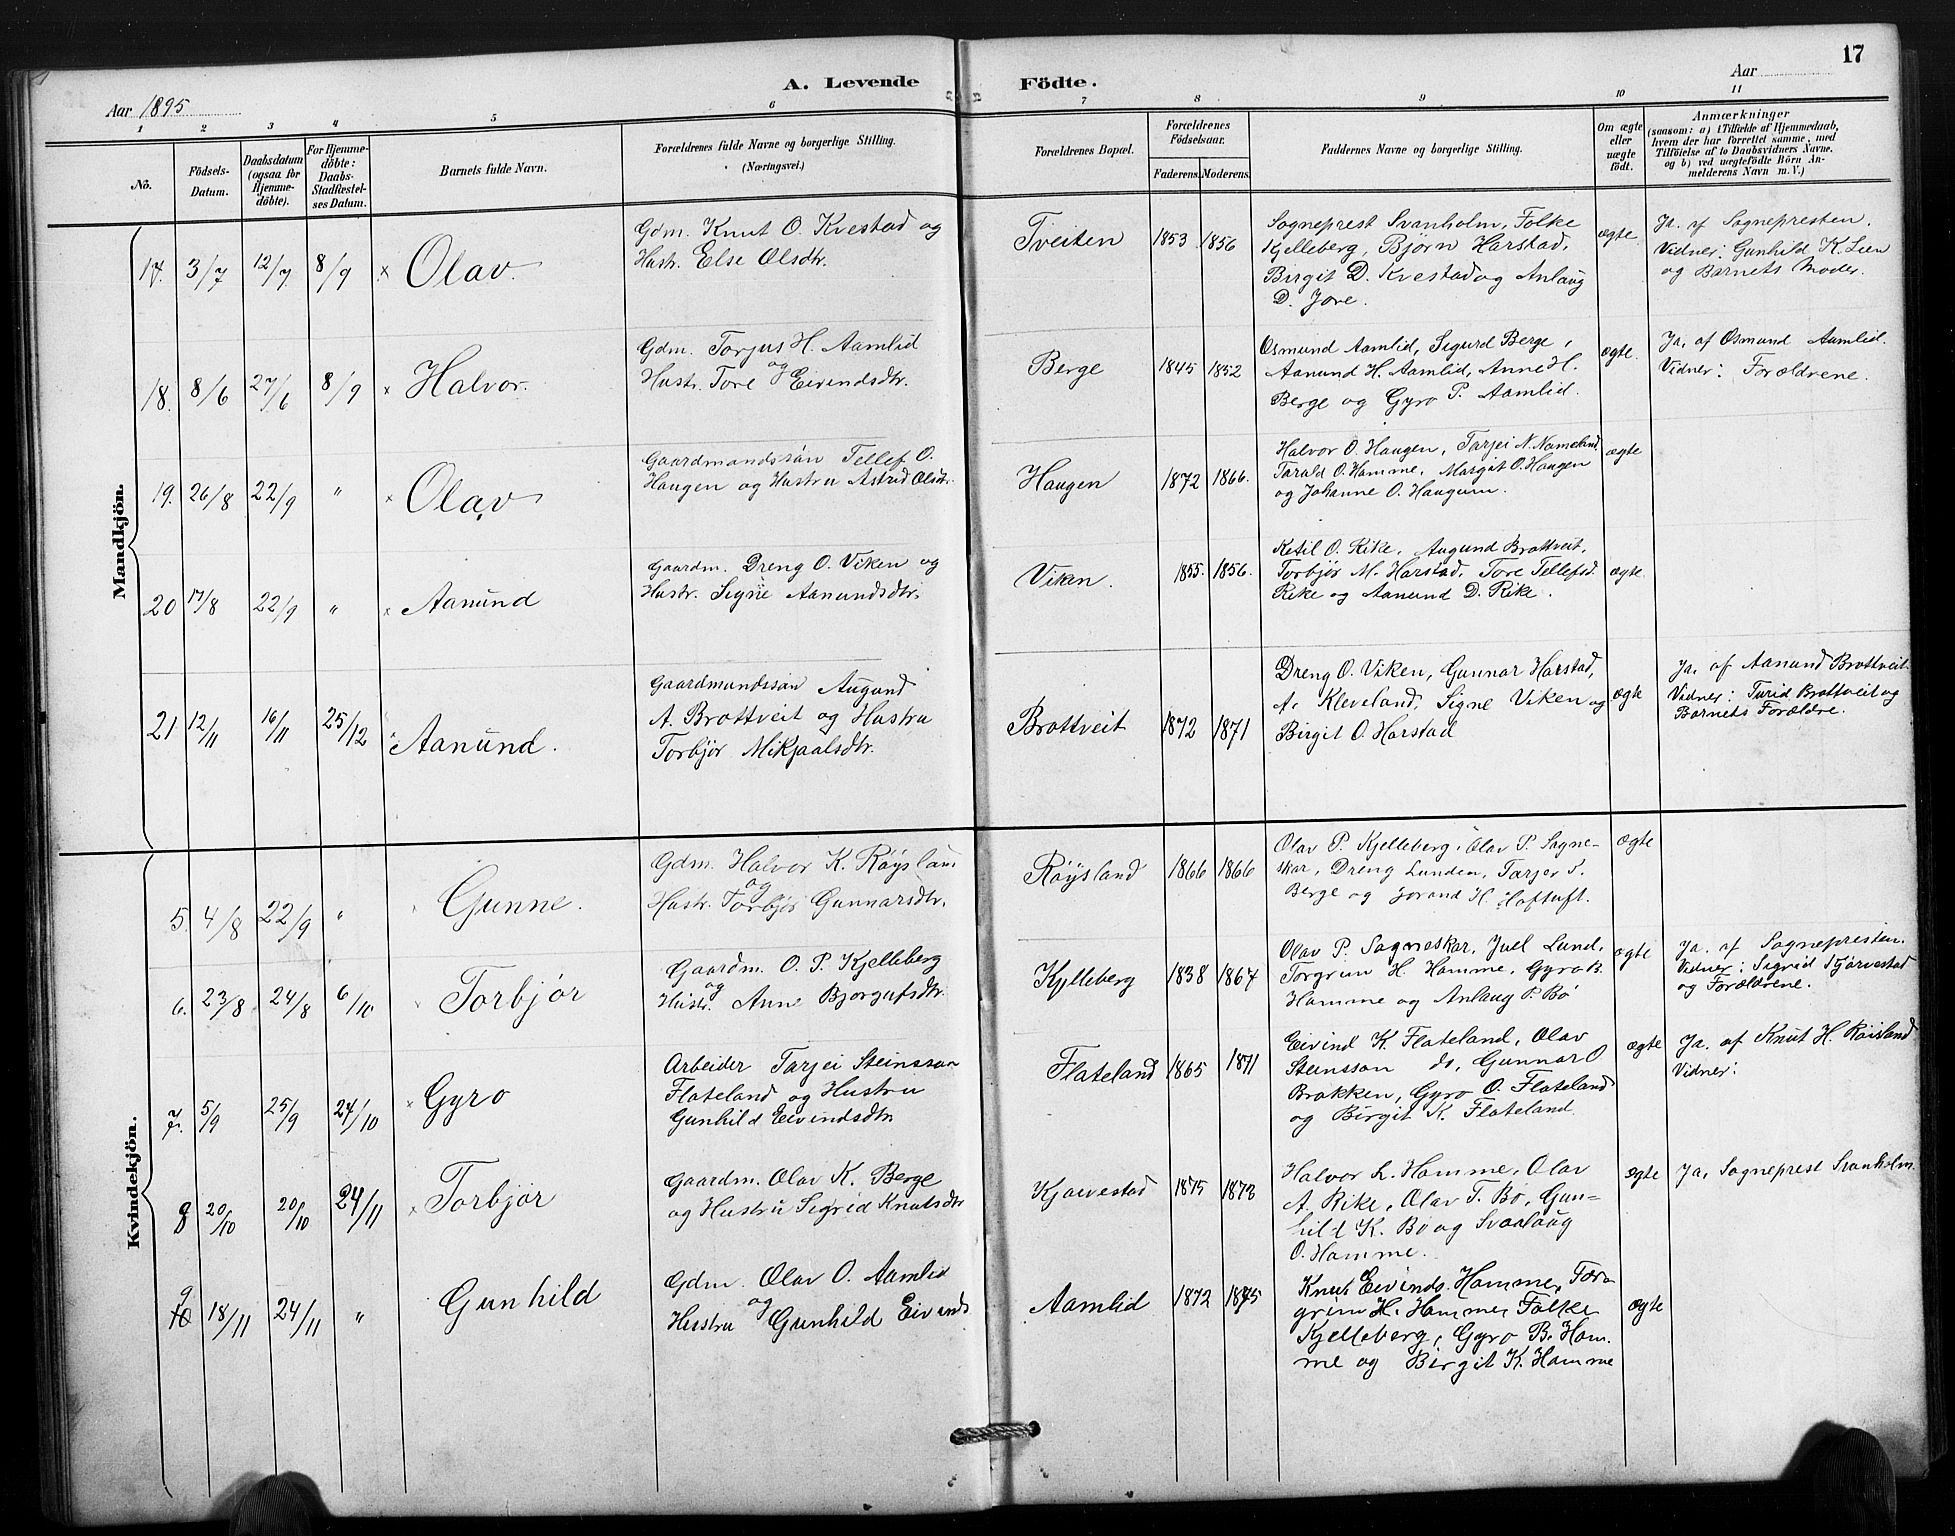 17
A. Levende Födte.
Aar 1895
Aar
1 2 3 4 5 6 7 8 9 10 11
Nô.
Födsels-
Datum.
Daabsdatum
(ogsaa for
Hjemme-
döbte).
For Hjemme-
döbte:
Daabs-
Stadfæstel-
ses Datum.
Barnets fulde Navn.
Forældrenes fulde Navne og borgerlige Stilling.
(Næringsvei.)
Forældrenes Bopæl.
Forældrenes
Födselsaar.
Faderens. Moderens.
Faddernes Navne og borgerlige Stilling.
Om ægte
eller
uægte
födt.
Anmærkninger
(saasom: a) i Tilfælde af Hjemmedaab,
hvem der har forrettet samme, med
Tilföielse af to Daabsvidners Navne,
og b) ved uægtefödte Börn An-
melderens Navn m. V.)
Mandkjön.
17. 3/7 12/7 8/9 × Olav.
Gdm. Knut O. Kvestad og
Hustr. Else Olsdtr.
Tveiten 1853 1856
Sogneprest Svanholm, Folke
Kjelleberg, Bjørn Harstad,
Birgit D. Kvestad og Anlaug
D. Jore.
ægte
Ja. af Sognepresten.
Vidner: Gunhild K. Lien
og Barnets Moder.
18. 8/6 27/6 8/9 × Halvor.
Gdm. Torjus H. Aamlid
og
Hustr. Tore Eivindsdtr.
Berge 1845 1852
Osmund Aamlid, Sigurd Berge,
Aanund H. Aamlid, Anne H.
Berge og Gyro P. Aamlid.
ægte.
Ja, af Osmund Aamlid.
Vidner: Forældrene.
19. 26/8 22/9 " × Olav
Gaardmandssøn Tellef O.
Haugen og Hustru Astrid Olsdtr.
Haugen 1872 1866.
Halvor O. Haugen, Tarjei N. Nomeland
Tarald O. Homme, Margit O. Haugen
og Johanne O. Haugum.
ægte
20 17/8 22/9 " × Aanund
Gaardm. Dreng O. Viken og
Hustr. Signe Aanundsdtr.
Viken. 1855. 1856.
Ketil O. Rike, Augund Brottveit,
Torbjør M. Harstad, Tore Tellefsd.
Rike og Aanund D. Rike.
ægte
21 12/11 16/11 25/12 × Aanund.
Gaardmandssøn Augund
A. Brottveit og Hustru
Torbjør Mikjaalsdtr.
Brottveit 1872 1871
Dreng O. Viken, Gunnar Harstad,
A. Kleveland, Signe Viken og
Birgit O. Harstad
ægte
Ja, af Aanund Brottveit.
Vidner: Turid Brottveit og
Barnets Forældre.
Kvindekjön.
5. 4/8 22/9 " Gunne.
Gdm. Halvor K. Røysland
og
Hustr. Torbjør Gunnarsdtr.
Røysland 1866 1866
Olav P. Kjelleberg, Olav P. Sagne-
skar, Dreng Lunden, Tarjei T.
Berge og Jorand H. Hoftuft.
ægte
6. 23/8 24/8 6/10 Torbjør
Gaardm. O. P. Kjelleberg
og
Hustr. Anne Bjorgufsdtr.
Kjelleberg 1838 1864
Olav P. Sagneskar, Juel Lund,
Torgrim H. Homme, Gyro B.
Homme og Anlaug P. Bø
ægte
Ja. af Sognepresten.
Vidner: Sigrid Kjørvestad
og Forældrene.
7. 5/9 25/9 24/10 × Gyro
Arbeider Tarjei Steinsson
Flateland og Hustru
Gunhild Eivindsdtr
Flateland 1865 1871
Eivind K. Flateland, Olav
Steinsson do, Gunnar O
Brokken, Gyro O. Flateland
og Birgit K. Flateland.
ægte
Ja. af Knut H. Røisland
Vidner:
8 20/10 20/10 24/11 × Torbjør
Gaardm. Olav K. Berge
og Hustru Sigrid Knutsdtr
Kjørvestad 1875 1873
Halvor L. Homme, Olav
A. Rike, Olav T. Bø, Gun-
hild K. Bø og Svaalaug
O. Homme.
ægte
Ja, Sogneprest Svanholm.
9
10 18/11 24/11 " Gunhild
Gdm. Olav O. Aamlid
og
Hustru Gunhild Eivinds
Aamlid 1872 1875
Knut Eivinds. Homme, Tor-
grim H. Homme, Folke
Kjelleberg, Gyro B. Hom-
me og Birgit K. Homme
ægte